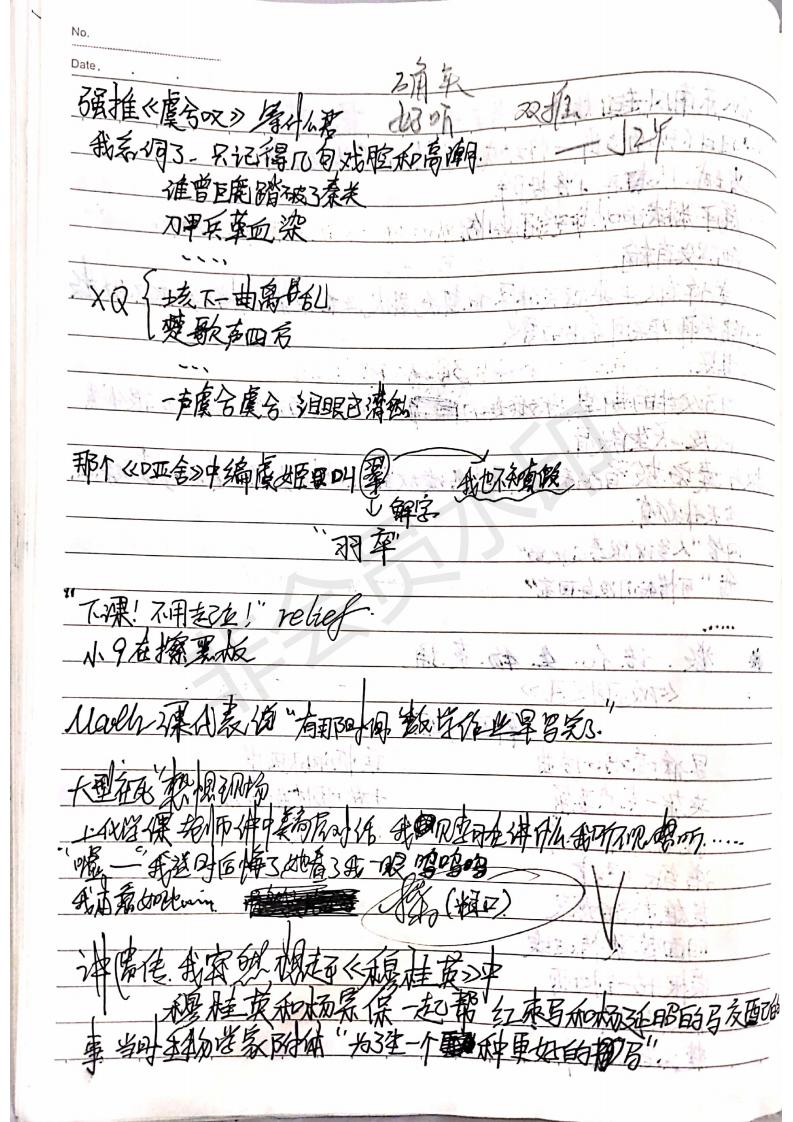 No.
Date.
的确
好听
双推
——J24
强推《虞兮叹》等什么君
我忘词了，只记得几句戏腔和高潮.
谁曾巨鹿踏破了秦关
刀甲兵革血染
....
XQ { 垓下一曲离乱
楚歌声四方
...
一声虞兮虞兮 泪眼已潸然
那个《哑舍》中编虞姬叫翠 我也不知真假
↓ 解字
"羽卒"
"下课！不用起立！" relief.
小9在擦黑板
......
Math课代表说"有那时间 数学作业早写完了."
大型在死"惧现场
上化学课 老师 对话 我 讲什么 我听不见 听......
"嘘——" 我 时后悔了她看了我一眼 呜呜呜
我 如此
(粗口)
讲遗传.我突然想起了《穆桂英》中
穆桂英和杨宗保一起帮 红枣马和杨延昭的马交配的
事 当时生物学家附体 "为了生一个 种更好的马".
非会员水印